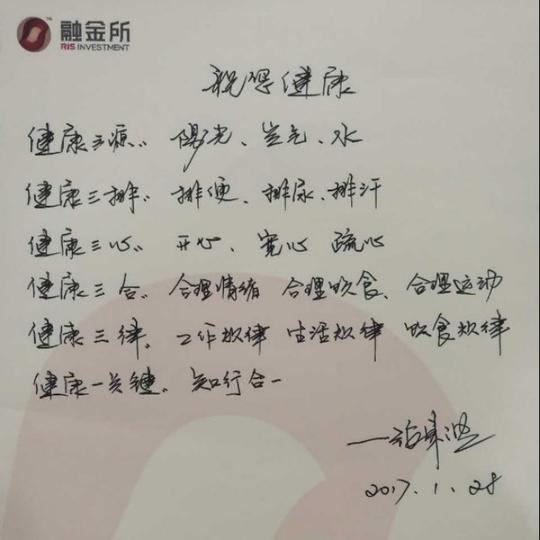 融金所
RIS INVESTMENT
健康
健康三源:阳光、空气、水
健康三排:排便、排尿、排汗
健康三心:开心、宽心 疏心
健康三合:合理情绪 合理饮食、合理运动
健康三律:工作规律 生活规律 饮食规律
健康一关键:知行合一
2017.1.28